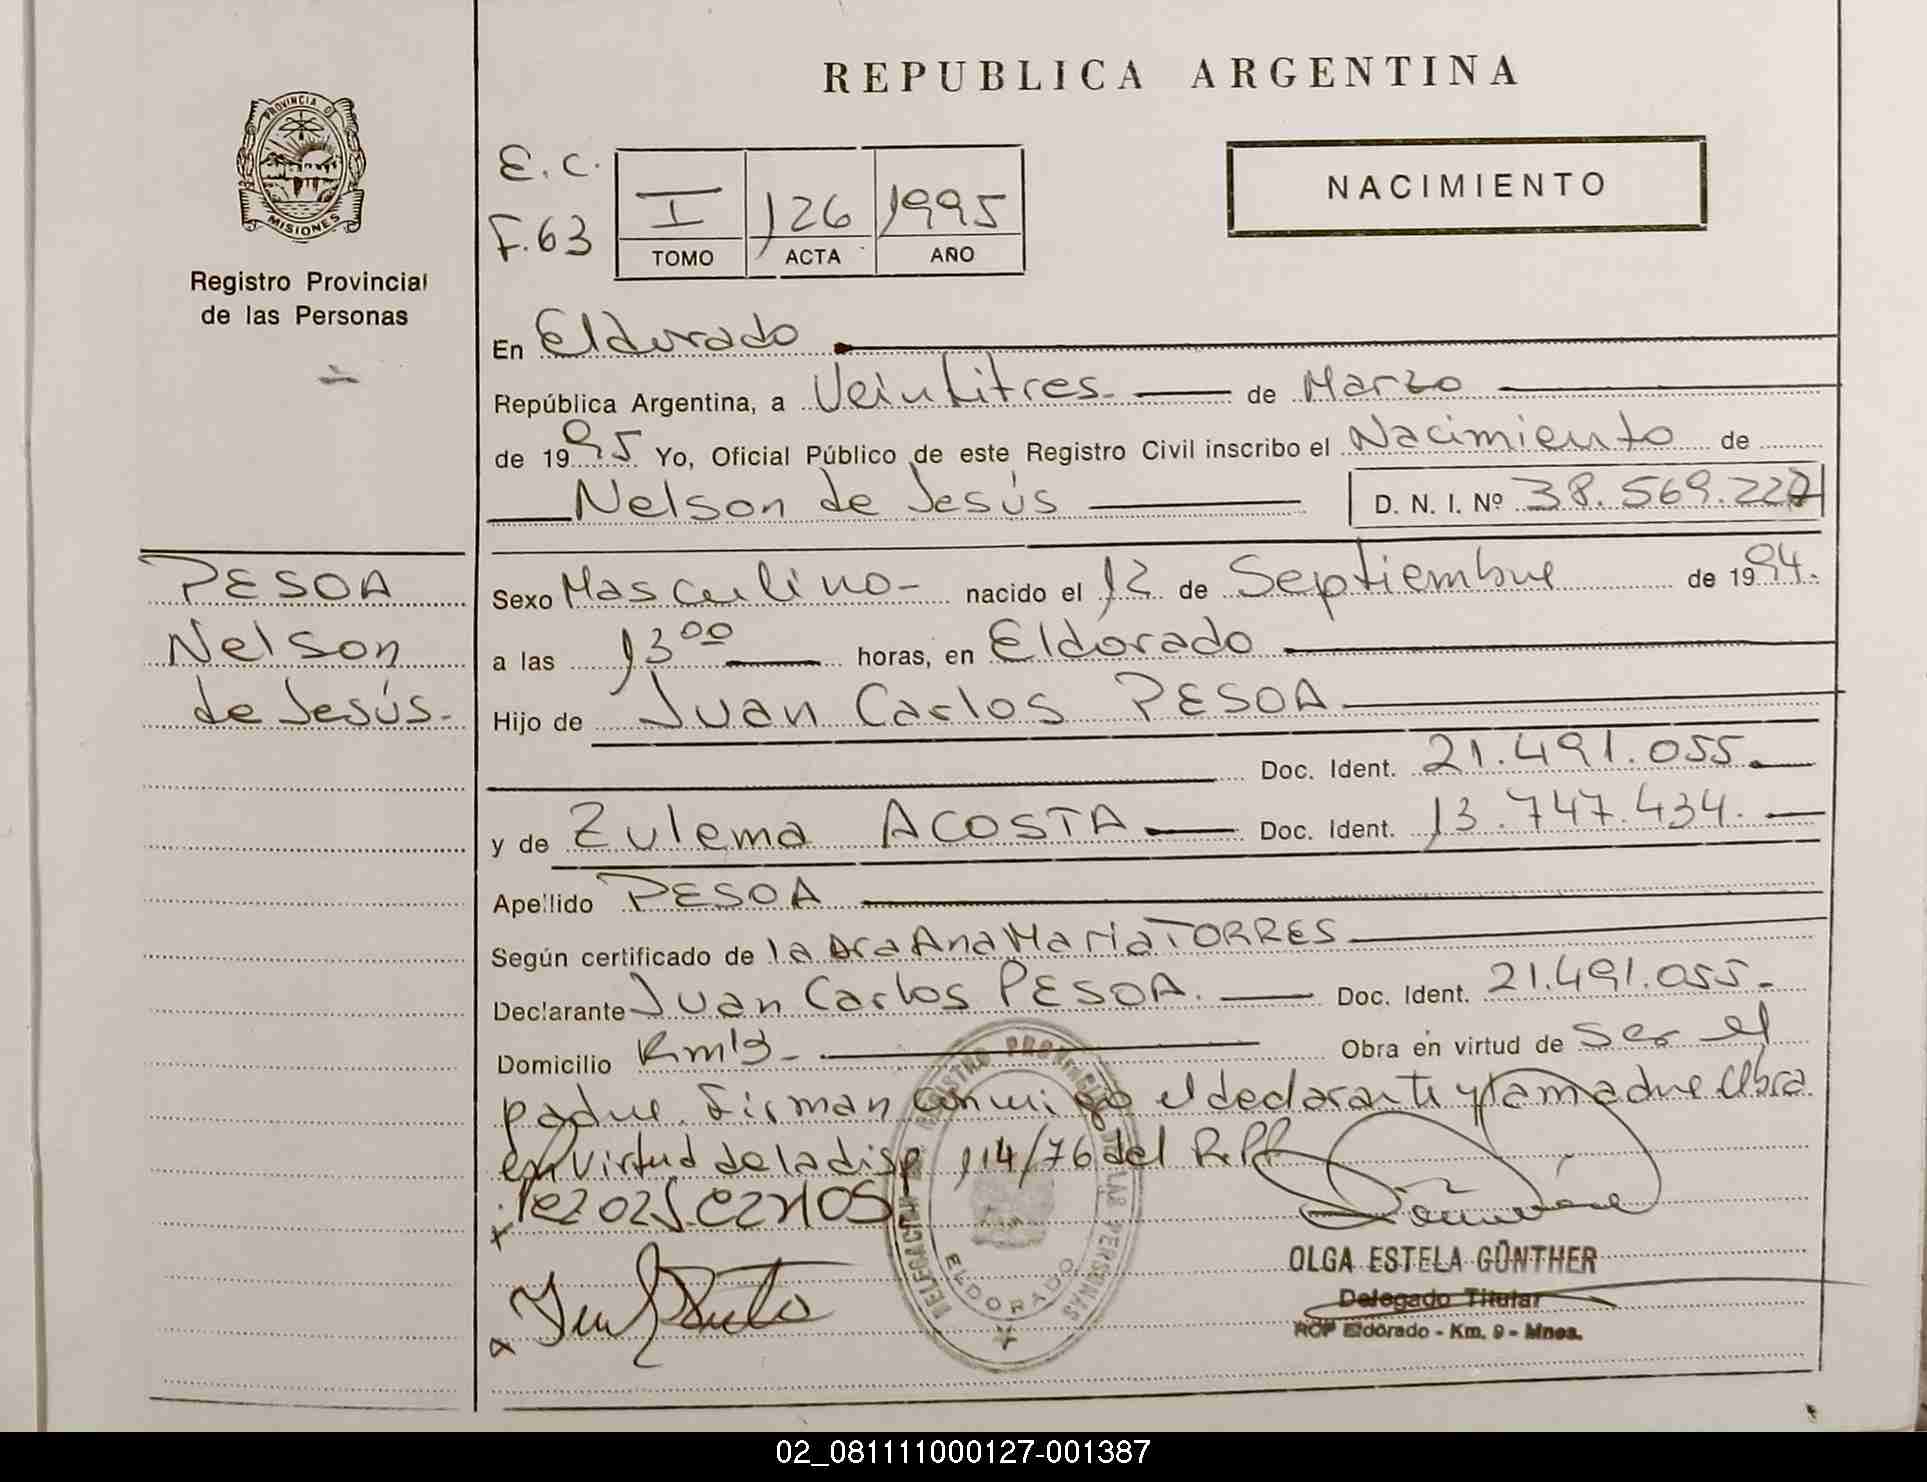 REPUBLICA ARGENTINA
PROVINCIA D
MISIONES
Registro Provincial
de las Personas
E.C.
F.63
I 126 1995
TOMO ACTA AÑO
NACIMIENTO
En Eldorado
República Argentina, a Veintitres de Marzo
de 1995 Yo, Oficial Público de este Registro Civil inscribo el Nacimiento de
Nelson de Jesús D. N. I. Nº 38.569.227
PESOA
Nelson
de Jesús.-
Sexo Masculino- nacido el 12 de Septiembre de 1994.
a las 13 00 horas, en Eldorado
Hijo de Juan Carlos PESOA
Doc. Ident. 21.491.055.
y de Zulema ACOSTA Doc. Ident. 13.747.434.
Apellido PESOA
Según certificado de la Dra Ana Maria TORRES
Declarante Juan Carlos PESOA. Doc. Ident. 21.491.055.-
Domicilio Km 3- Obra en virtud de ser el
padre. Firman conmigo el declarante y la madre. Obra
en virtud de la disp 114/76 del R.P.P.
DELEGACION REGISTRO PROVINCIAL DE LAS PERSONAS
ELDORADO
OLGA ESTELA GÜNTHER
Delegado Titular
RCP Eldorado - Km. 9 - Mnes.
02_081111000127-001387